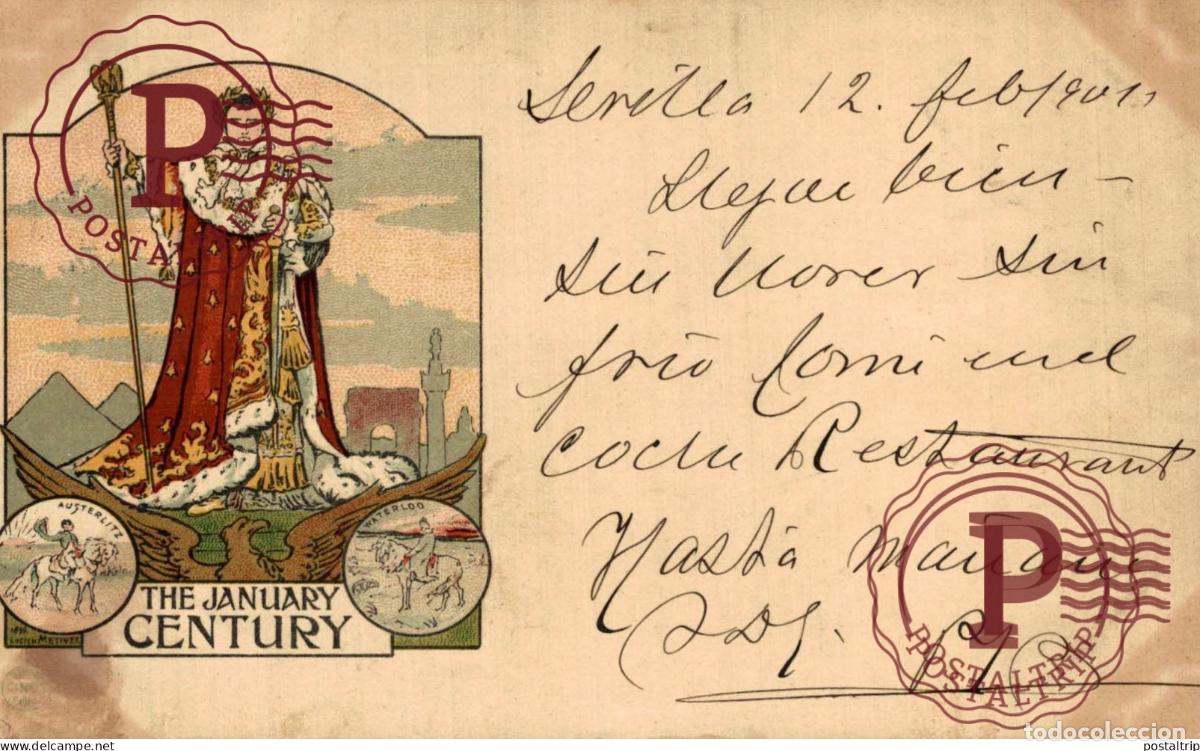 AUSTERLITZ
WATERLOO
THE JANUARY
CENTURY
LUCIEN METIVET
Sevilla 12. feb/901
Llegue bien —
sin llover sin
frio Comi en el
coche Restaurant
Hasta mañana
POSTALTRIP
P
POSTALTRIP
P
todocoleccion
www.delcampe.net
postaltrip